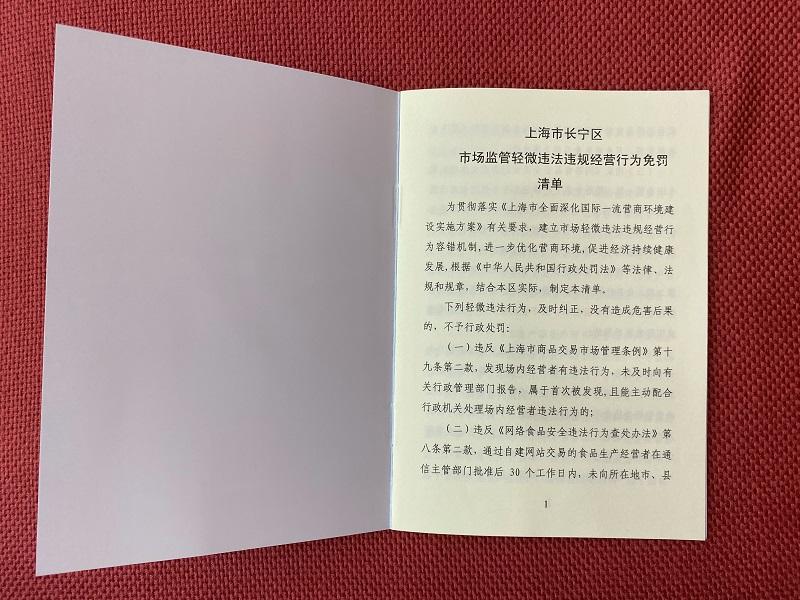 上海市长宁区
市场监管轻微违法违规经营行为免罚
清单
为贯彻落实《上海市全面深化国际一流营商环境建
设实施方案》有关要求，建立市场轻微违法违规经营行
为容错机制,进一步优化营商环境,促进经济持续健康
发展,根据《中华人民共和国行政处罚法》等法律、法
规和规章，结合本区实际，制定本清单。
下列轻微违法行为，及时纠正，没有造成危害后果
的，不予行政处罚：
（一）违反《上海市商品交易市场管理条例》第十
九条第二款，发现场内经营者有违法行为，未及时向有
关行政管理部门报告，属于首次被发现,且能主动配合
行政机关处理场内经营者违法行为的;
（二）违反《网络食品安全违法行为查处办法》第
八条第二款，通过自建网站交易的食品生产经营者在通
信主管部门批准后 30 个工作日内，未向所在地市、县
1